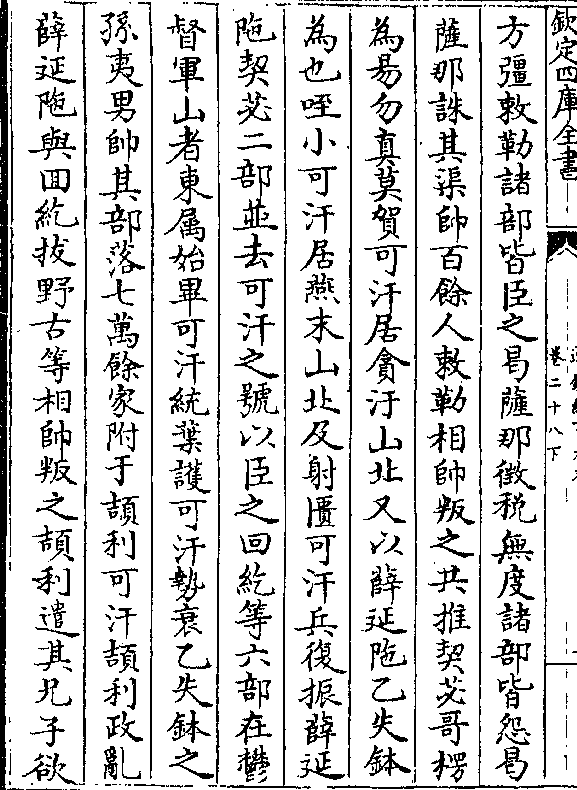 欽定四庫全書
卷二十八下
方彊敕勒諸部皆臣之曷薩那徵稅無度諸部皆怨曷
薩那誅其渠帥百餘人敕勒相帥叛之共推契苾哥楞
為易勿真莫賀可汗居貪汗山北又以薛延陁乙失鉢
為也咥小可汗居燕末山北及射匱可汗兵復振薛延
陁契苾二部並去可汗之號以臣之回紇等六部在鬱
督軍山者東屬始畢可汗統葉護可汗勢衰乙失鉢之
孫夷男帥其部落七萬餘家附于頡利可汗頡利政亂
薛延陁與回紇拔野古等相帥叛之頡利遣其兄子欲